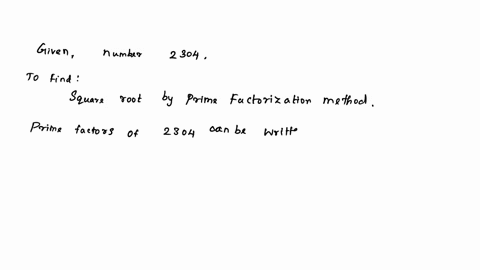 Given, number 2304.
To find:
Square root by Prime Factorization method.
Prime factors of 2304 can be writte